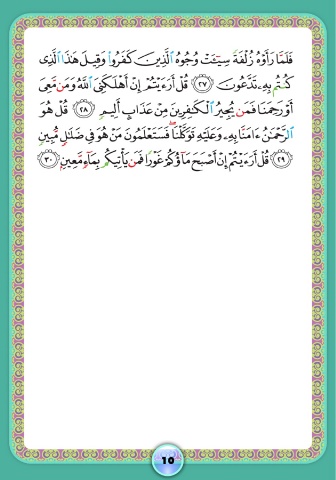 فَلَمَّا رَأَوْهُ زُلْفَةً سِيٓـَٔتْ وُجُوهُ ٱلَّذِينَ كَفَرُوا۟ وَقِيلَ هَـٰذَا ٱلَّذِى
كُنتُم بِهِۦ تَدَّعُونَ ﴿٢٧﴾ قُلْ أَرَءَيْتُمْ إِنْ أَهْلَكَنِىَ ٱللَّهُ وَمَن مَّعِىَ
أَوْ رَحِمَنَا فَمَن يُجِيرُ ٱلْكَـٰفِرِينَ مِنْ عَذَابٍ أَلِيمٍ ﴿٢٨﴾ قُلْ هُوَ
ٱلرَّحْمَـٰنُ ءَامَنَّا بِهِۦ وَعَلَيْهِ تَوَكَّلْنَا ۖ فَسَتَعْلَمُونَ مَنْ هُوَ فِى ضَلَـٰلٍ مُّبِينٍ
﴿٢٩﴾ قُلْ أَرَءَيْتُمْ إِنْ أَصْبَحَ مَآؤُكُمْ غَوْرًا فَمَن يَأْتِيكُم بِمَآءٍ مَّعِينٍۭ ﴿٣٠﴾
10